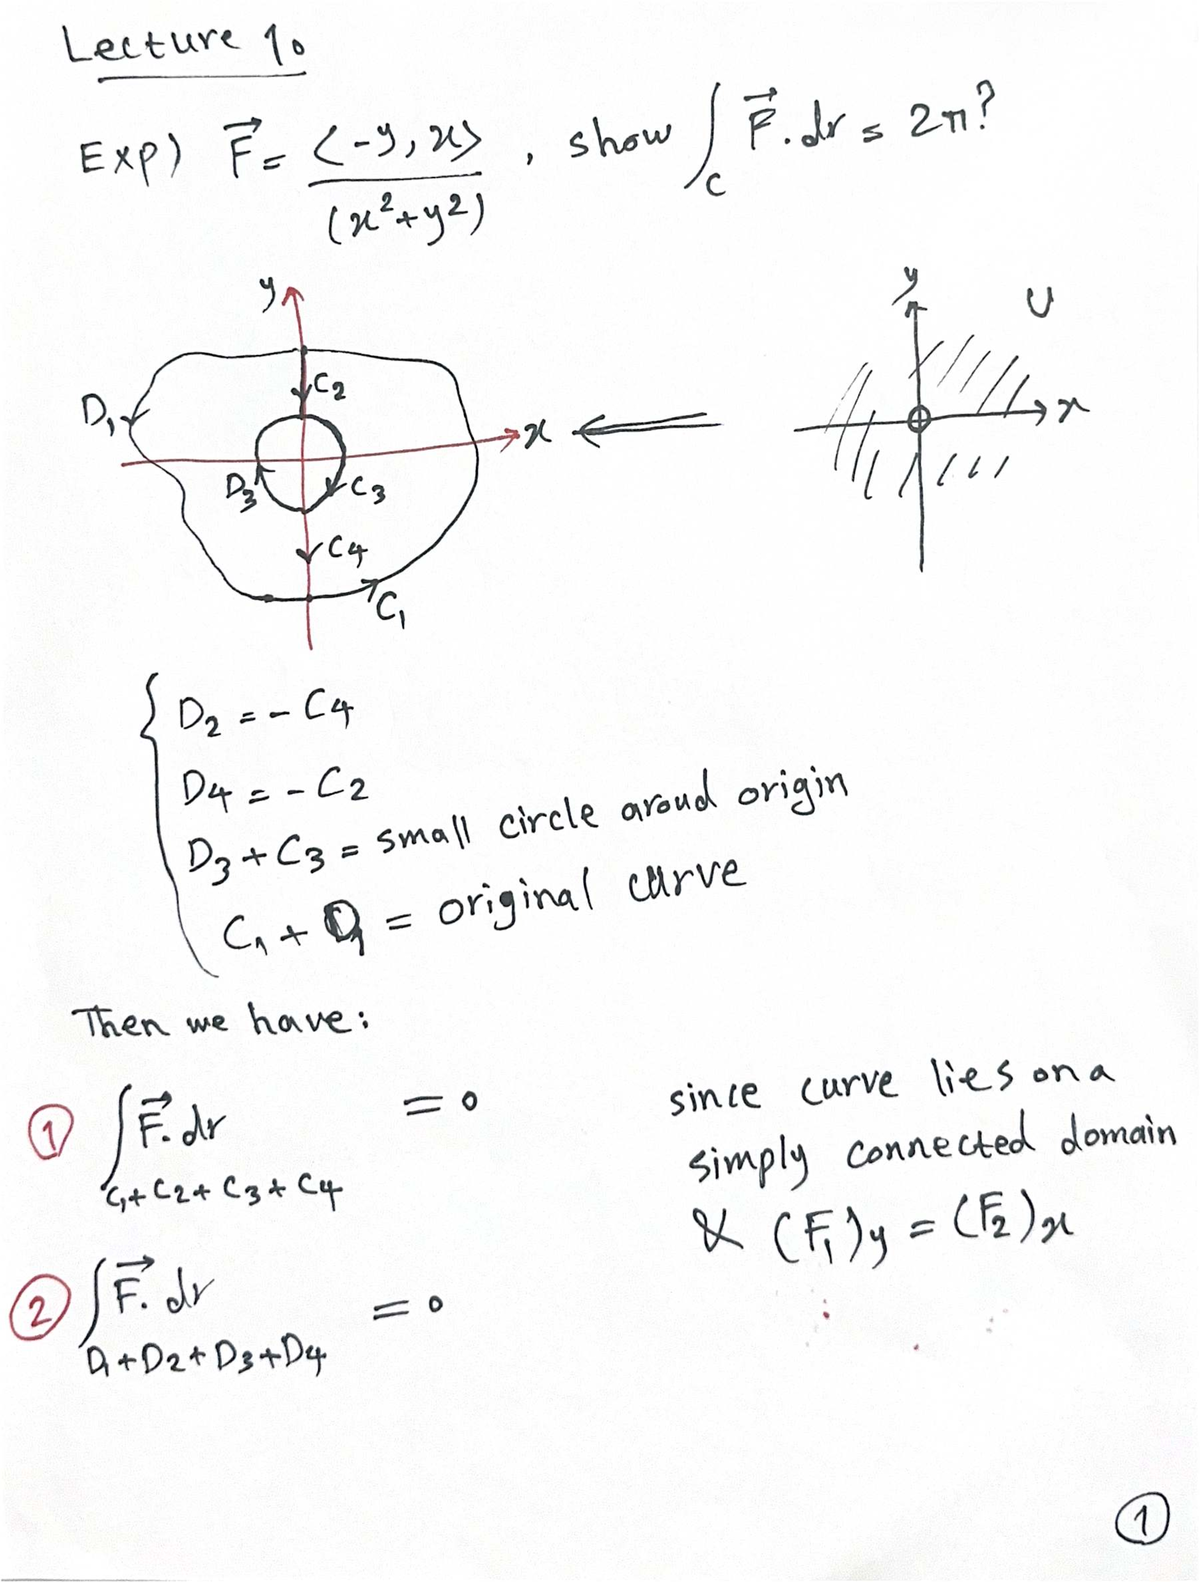 Lecture 10
Exp) F⃗ = <-y, x> / (x²+y²) , show ∫_C F⃗.dr = 2π?
y
D₁
C₂
x
D₃
C₃
C₄
C₁
y
U
x
D₂ = - C₄
D₄ = - C₂
D₃ + C₃ = small circle aroud origin
C₁ + D₁ = original curve
Then we have:
① ∫F⃗.dr = 0
C₁+C₂+C₃+C₄
since curve lies on a
simply connected domain
& (F₁)y = (F₂)x
② ∫F⃗.dr = 0
D₁+D₂+D₃+D₄
①